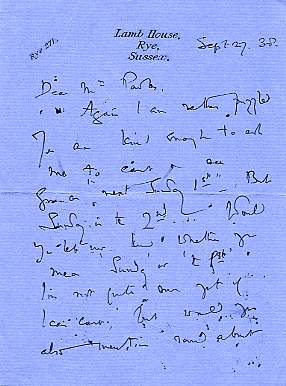 Lamb House,
Rye,
Sussex.
Rye 271.
Sept. 27. 38.
Dear Mrs
Again I am rather puzzled
You are kind enough to ask
me to come or
next Sunday 1st". But
Sunday is the 2nd. Would
you let me know whether you
mean Sunday or "the 1st"
I'm not quite sure yet if
I can come: but would you
also mention round about